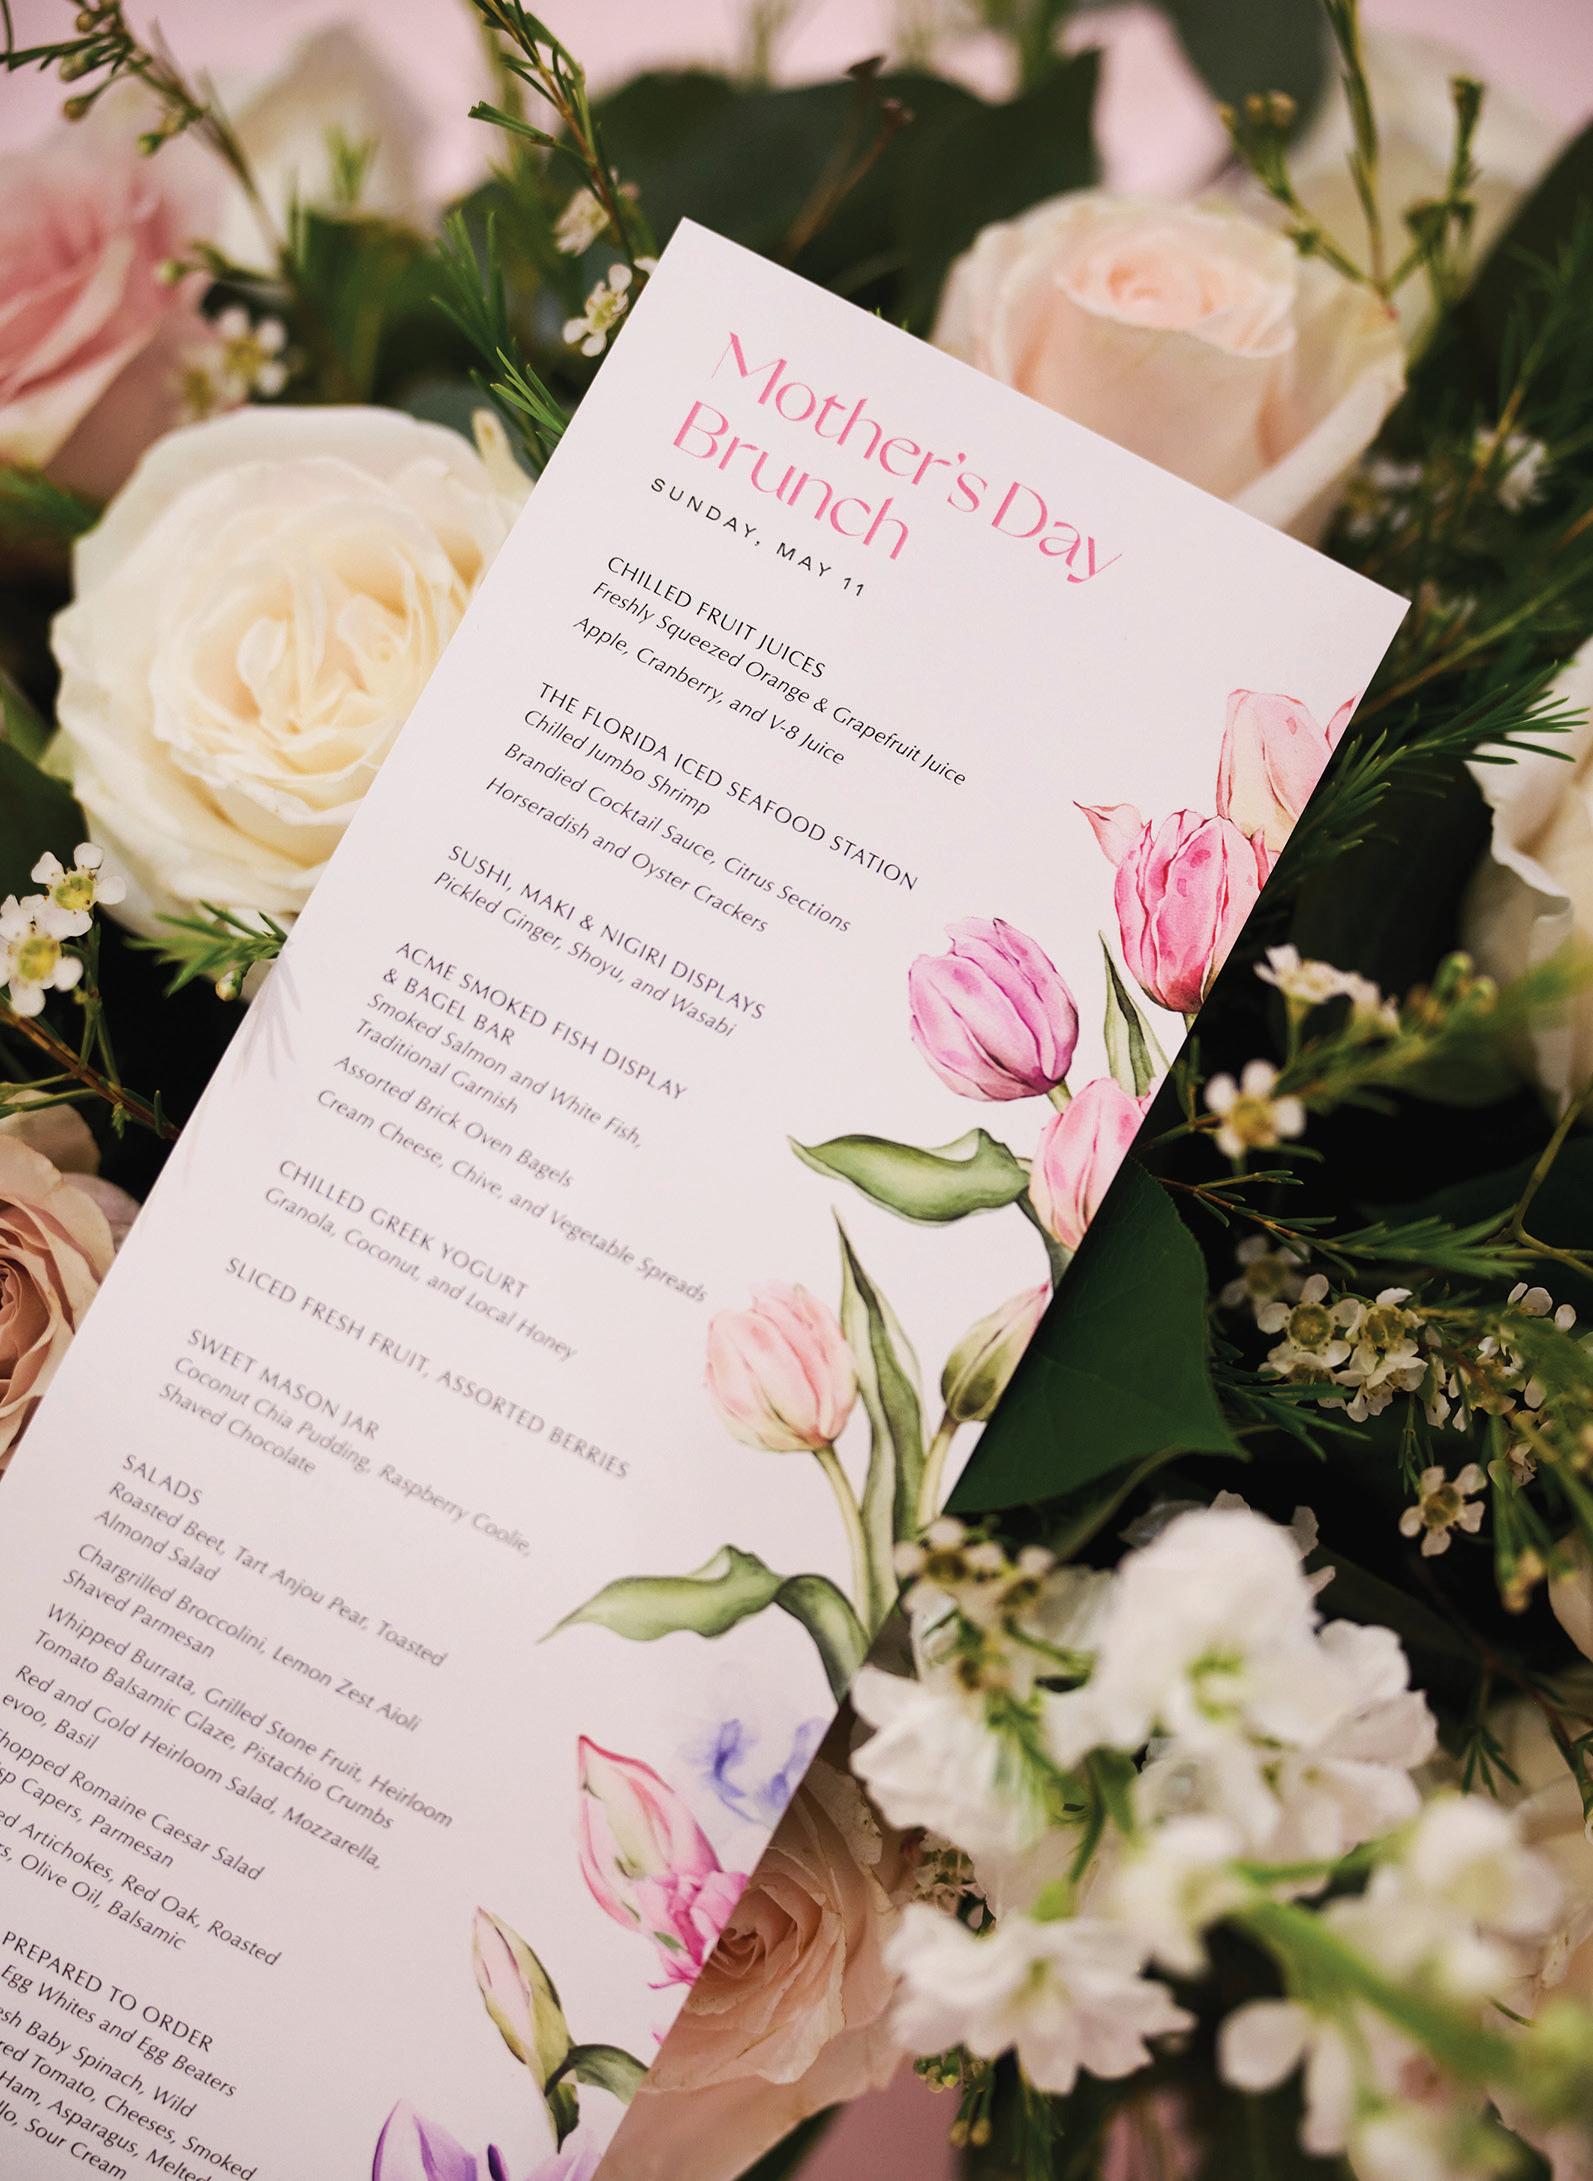 Mother's Day
Brunch
SUNDAY, MAY 11
CHILLED FRUIT JUICES
Freshly Squeezed Orange & Grapefruit Juice
Apple, Cranberry, and V-8 Juice
THE FLORIDA ICED SEAFOOD STATION
Chilled Jumbo Shrimp
Brandied Cocktail Sauce, Citrus Sections
Horseradish and Oyster Crackers
SUSHI, MAKI & NIGIRI DISPLAYS
Pickled Ginger, Shoyu, and Wasabi
ACME SMOKED FISH DISPLAY
& BAGEL BAR
Smoked Salmon and White Fish,
Traditional Garnish
Assorted Brick Oven Bagels
Cream Cheese, Chive, and Vegetable Spreads
CHILLED GREEK YOGURT
Granola, Coconut, and Local Honey
SLICED FRESH FRUIT, ASSORTED BERRIES
SWEET MASON JAR
Coconut Chia Pudding, Raspberry Coolie,
Shaved Chocolate
SALADS
Roasted Beet, Tart Anjou Pear, Toasted
Almond Salad
Chargrilled Broccolini, Lemon Zest Aioli
Shaved Parmesan
Whipped Burrata, Grilled Stone Fruit, Heirloom
Tomato Balsamic Glaze, Pistachio Crumbs
Red and Gold Heirloom Salad, Mozzarella,
evoo, Basil
hopped Romaine Caesar Salad
sp Capers, Parmesan
ed Artichokes, Red Oak, Roasted
rs, Olive Oil, Balsamic
PREPARED TO ORDER
Egg Whites and Egg Beaters
esh Baby Spinach, Wild
red Tomato, Cheeses, Smoked
Ham, Asparagus, Melted
llo, Sour Cream